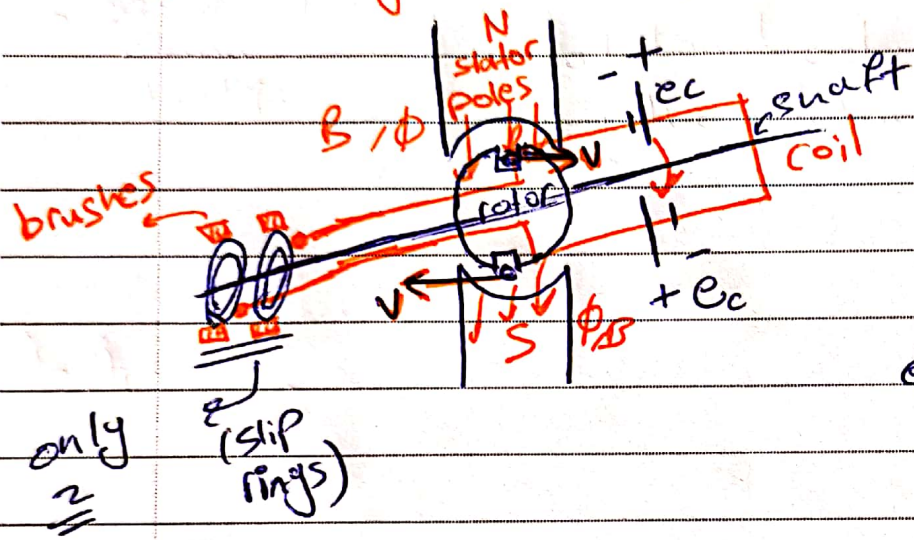 N
stator
poles
B, Φ
- +
ec
shaft
coil
V
brushes
rotor
V
S
ΦB
-
+ ec
only
2
(slip
rings)